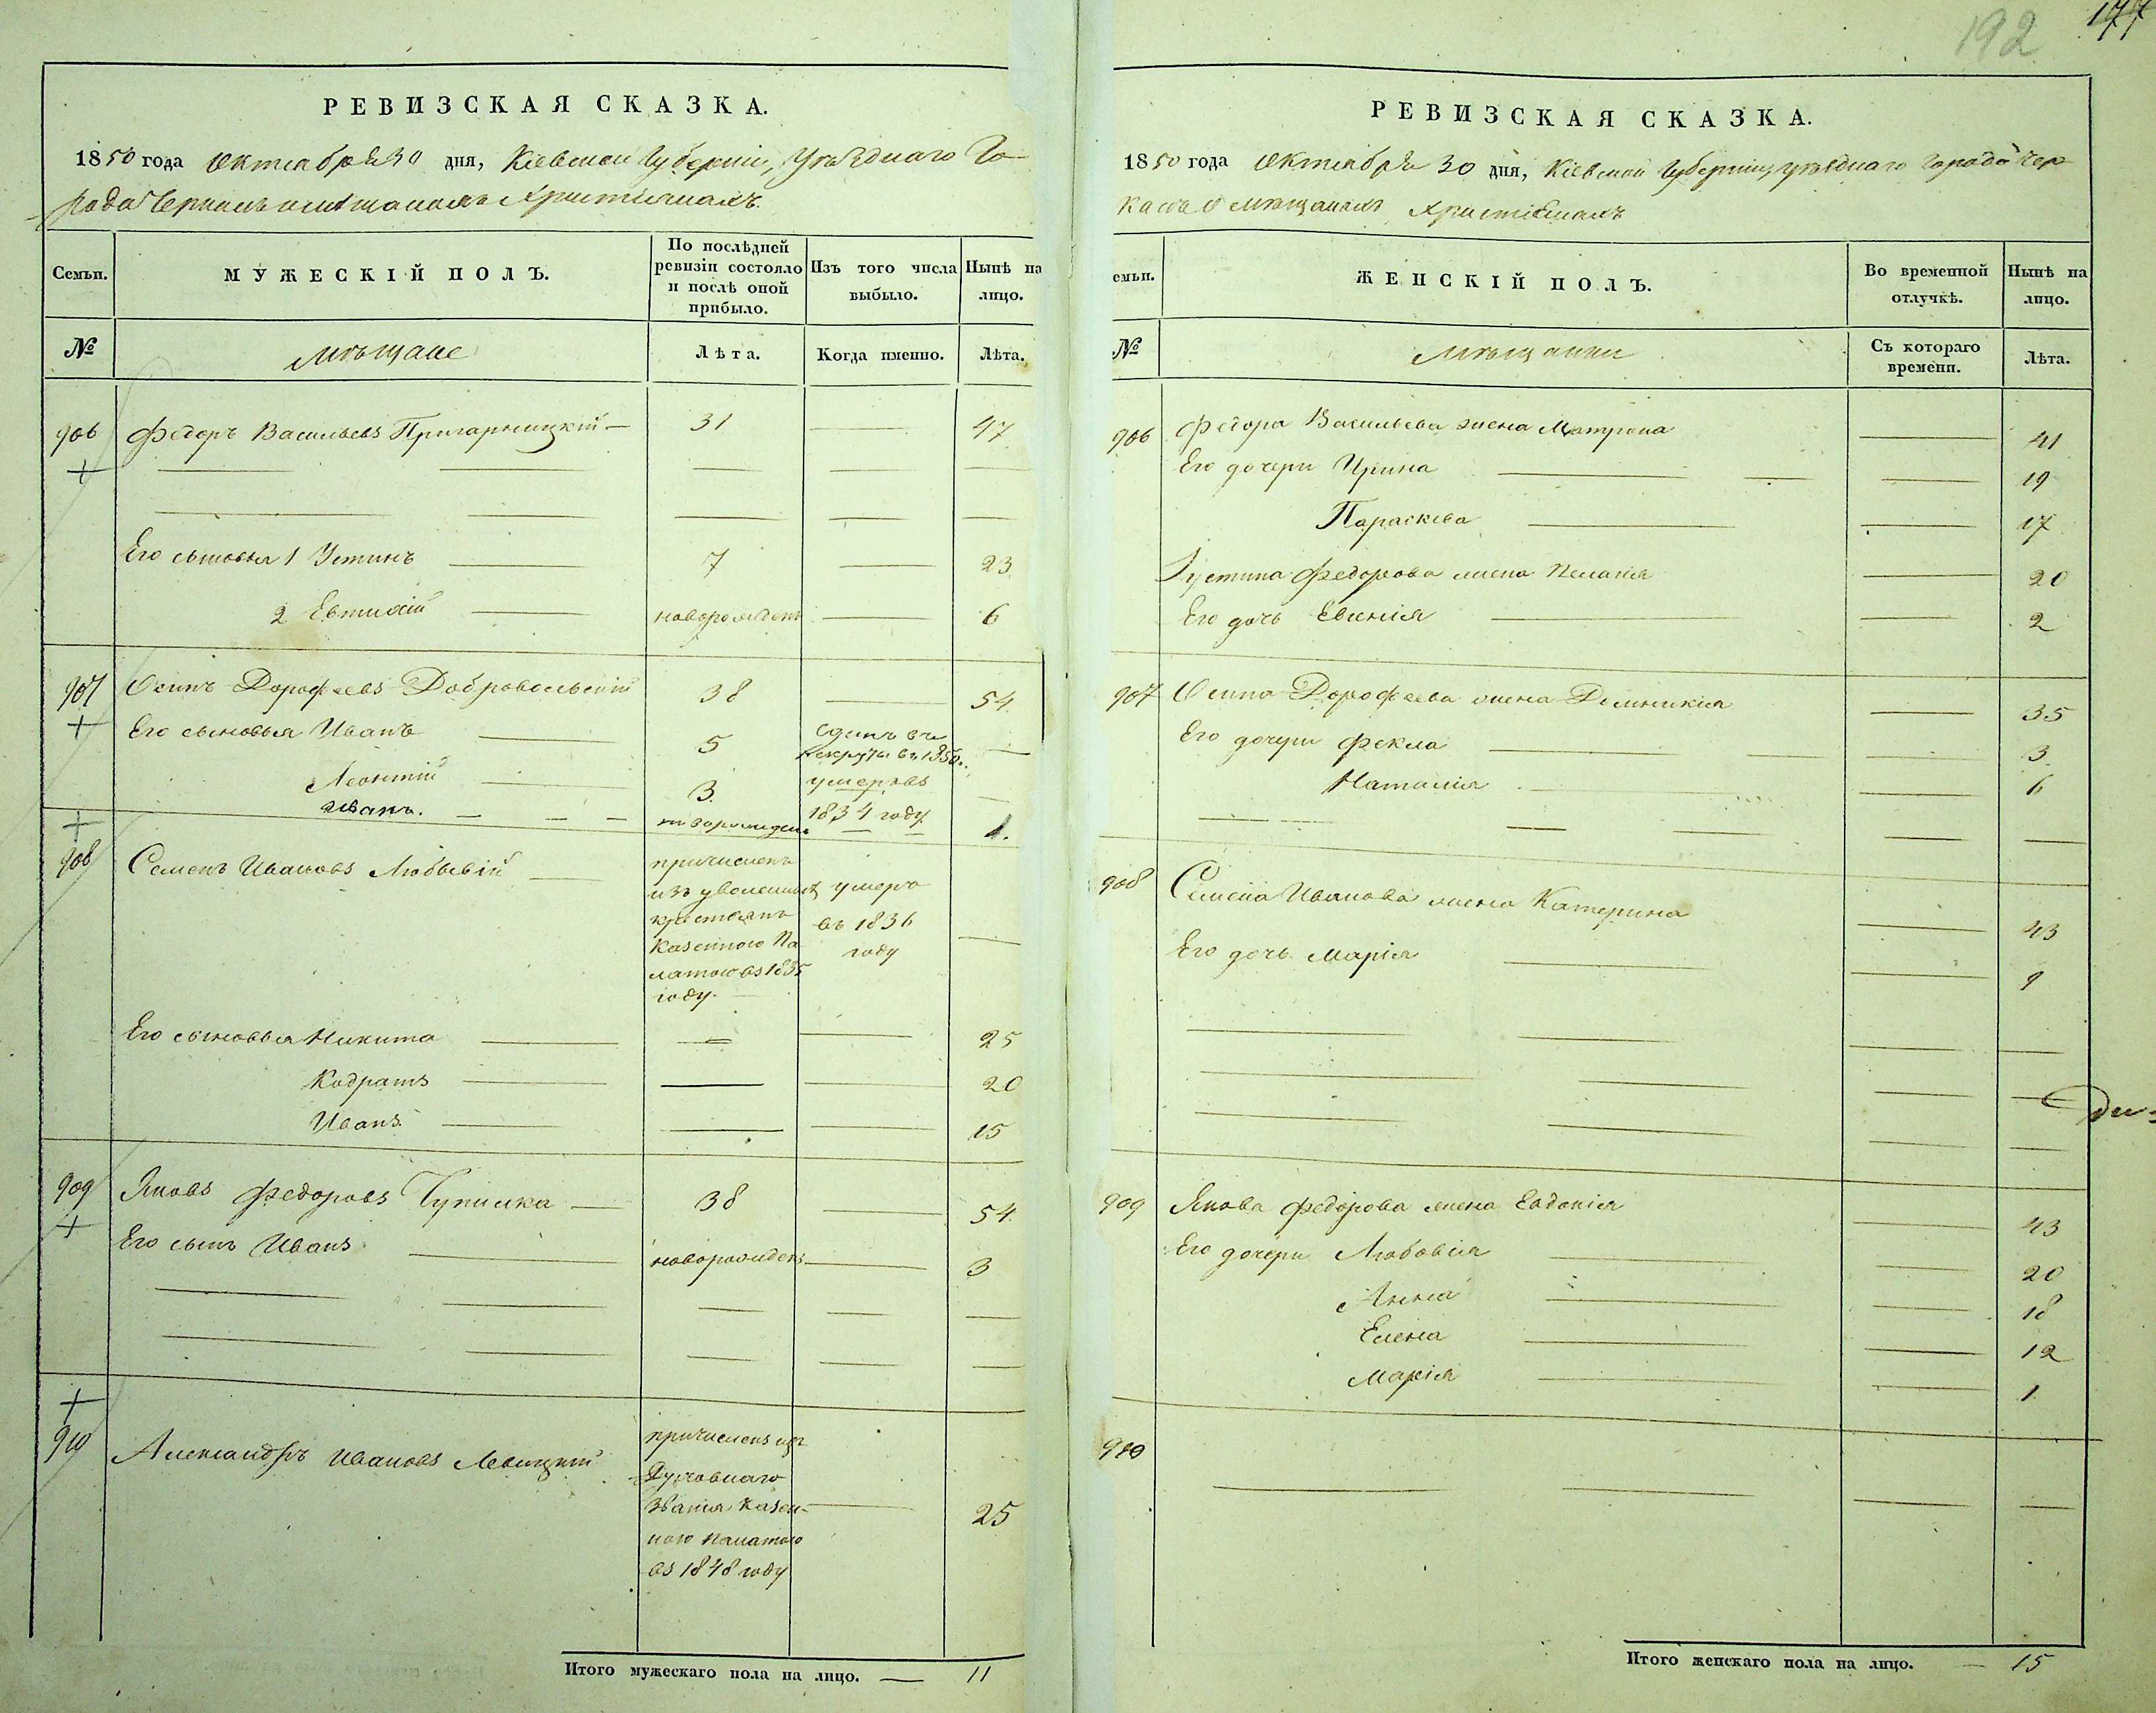 192 177
РЕВИЗСКАЯ СКАЗКА.
1850 года Октября 30 дня, Кіевской Губерніи, Уѣзднаго Го-
рода Черкасъ о мѣщанахъ Христіянахъ.
Семьи. МУЖЕСКІЙ ПОЛЪ. По послѣдней ревизіи состояло и послѣ оной прибыло. Изъ того числа выбыло. Нынѣ на лицо.
№ Мѣщане Лѣта. Когда именно. Лѣта.
906 Федоръ Васильевъ Пригарницкій — 31 — 47
Его сыновья 1 Устинъ — 7 — 23
2 Евтихій — новорожденъ — 6
907 Осипъ Дорофѣевъ Добровольскій 38 — 54
Его сыновья Иванъ — 5 сданъ въ рекруты въ 1850 —
Леонтій — 3 умеръ въ 1834 году —
Иванъ. — новорожденъ — 1.
908 Семенъ Ивановъ Любывій —
причисленъ
изъ уволенныхъ умеръ
крестьянъ въ 1836
Казенною Па году —
латою въ 1835
году.
Его сыновья Никита — 25
Кодратъ — 20
Иванъ — 15
909 Яковъ Федоровъ Чупилка — 38 — 54
Его сынъ Иванъ — новорожденъ — 3
910 Александръ Ивановъ Левицкій
причисленъ изъ
Духовнаго
званія Казен-
ною Палатою — 25
въ 1848 году
Итого мужескаго пола на лицо. — 11
РЕВИЗСКАЯ СКАЗКА.
1850 года Октября 30 дня, Кіевской Губерніи, уѣзднаго города Чер
касъ о мѣщанахъ Христіянахъ
емьи. ЖЕНСКІЙ ПОЛЪ. Во временной отлучкѣ. Нынѣ на лицо.
№ Мѣщанки Съ котораго времени. Лѣта.
906 Федора Васильева жена Матрона — 41
Его дочери Ирина — 19
Параскева — 17
Густина Федорова жена Пелагія — 20
Его дочь Евгенія — 2
907 Осипа Дорофѣева жена Домникія — 35
Его дочери Фекла — 3
Наталія — 6
908 Семена Иванова жена Катерина — 43
Его дочь Марія — 9
909 Якова Федорова жена Евдокія — 43
Его дочери Любовія — 20
Анна — 18
Елена — 12
Марія — 1
910
Итого женскаго пола на лицо. — 15